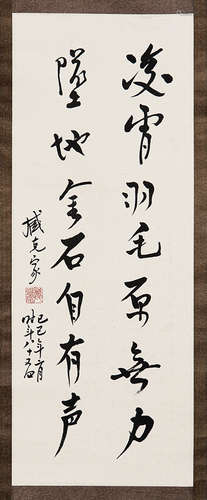 凌霄羽毛原無力
墜地金石自有声
臧克家
己巳年二月
时年八十五